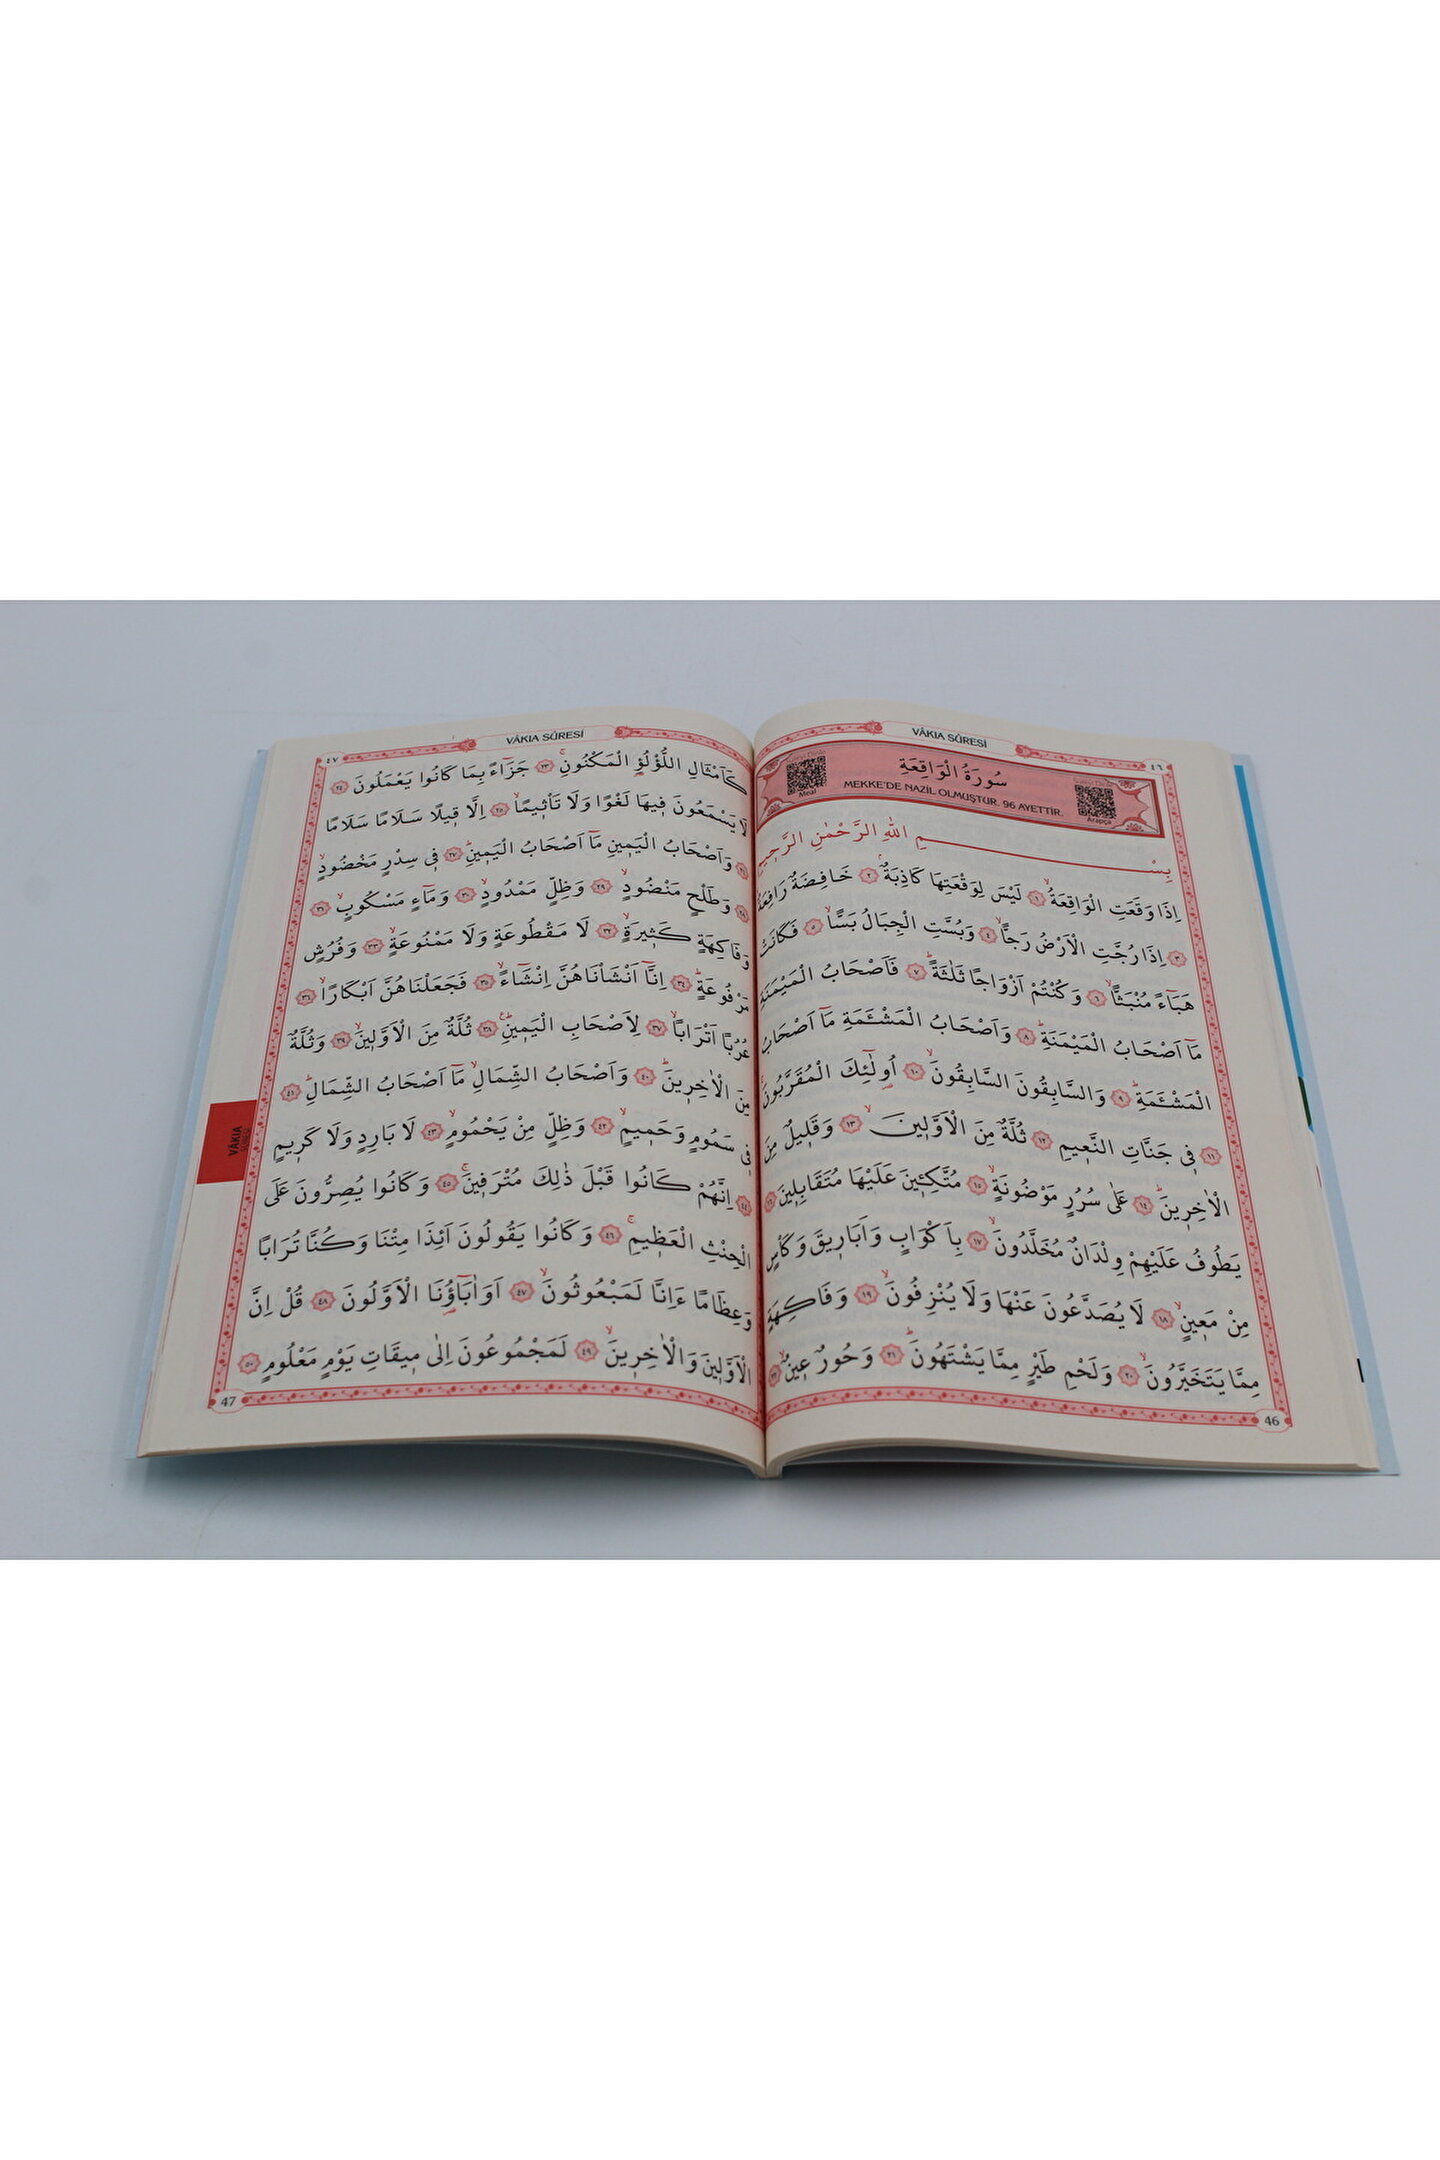 VÂKIA SÛRESİ
٤٦
سُورَةُ الْوَاقِعَةِ
MEKKE'DE NAZİL OLMUŞTUR. 96 AYETTİR.
Meal
Arapça
بِسْمِ اللهِ الرَّحْمٰنِ الرَّحِيمِ
اِذَا وَقَعَتِ الْوَاقِعَةُۙ ١ لَيْسَ لِوَقْعَتِهَا كَاذِبَةٌۢ ٢ خَافِضَةٌ رَافِعَةٌ
٣ اِذَا رُجَّتِ الْاَرْضُ رَجًّاۙ ٤ وَبُسَّتِ الْجِبَالُ بَسًّاۙ ٥ فَكَانَتْ
هَبَٓاءً مُنْبَثًّاۙ ٦ وَكُنْتُمْ اَزْوَاجًا ثَلٰثَةًۜ ٧ فَاَصْحَابُ الْمَيْمَنَةِ
مَٓا اَصْحَابُ الْمَيْمَنَةِۜ ٨ وَاَصْحَابُ الْمَشْـَٔمَةِ مَٓا اَصْحَابُ
الْمَشْـَٔمَةِۜ ٩ وَالسَّابِقُونَ السَّابِقُونَۙ ١٠ اُولٰٓئِكَ الْمُقَرَّبُونَۚ
١١ فِي جَنَّاتِ النَّعِيمِ ١٢ ثُلَّةٌ مِنَ الْاَوَّلِينَۙ ١٣ وَقَلِيلٌ مِنَ
الْاٰخِرِينَۜ ١٤ عَلٰى سُرُرٍ مَوْضُونَةٍۙ ١٥ مُتَّكِـِٔينَ عَلَيْهَا مُتَقَابِلِينَ ١٦
يَطُوفُ عَلَيْهِمْ وِلْدَانٌ مُخَلَّدُونَۙ ١٧ بِاَكْوَابٍ وَاَبَارِيقَ وَكَأْسٍ
مِنْ مَعِينٍۙ ١٨ لَا يُصَدَّعُونَ عَنْهَا وَلَا يُنْزِفُونَۙ ١٩ وَفَاكِهَةٍ
مِمَّا يَتَخَيَّرُونَۙ ٢٠ وَلَحْمِ طَيْرٍ مِمَّا يَشْتَهُونَۜ ٢١ وَحُورٌ عِينٌۙ ٢٢
46
VÂKIA SÛRESİ
٤٧
كَاَمْثَالِ اللُّؤْلُؤِ الْمَكْنُونِۚ ٢٣ جَزَٓاءً بِمَا كَانُوا يَعْمَلُونَ ٢٤
لَا يَسْمَعُونَ فِيهَا لَغْوًا وَلَا تَأْثِيمًاۙ ٢٥ اِلَّا قِيلًا سَلَامًا سَلَامًا
٢٦ وَاَصْحَابُ الْيَمِينِ مَٓا اَصْحَابُ الْيَمِينِۜ ٢٧ فِي سِدْرٍ مَخْضُودٍۙ
٢٨ وَطَلْحٍ مَنْضُودٍۙ ٢٩ وَظِلٍّ مَمْدُودٍۙ ٣٠ وَمَٓاءٍ مَسْكُوبٍۙ ٣١
وَفَاكِهَةٍ كَثِيرَةٍۙ ٣٢ لَا مَقْطُوعَةٍ وَلَا مَمْنُوعَةٍۙ ٣٣ وَفُرُشٍ
مَرْفُوعَةٍۜ ٣٤ اِنَّٓا اَنْشَأْنَاهُنَّ اِنْشَٓاءًۙ ٣٥ فَجَعَلْنَاهُنَّ اَبْكَارًاۙ ٣٦
عُرُبًا اَتْرَابًاۙ ٣٧ لِاَصْحَابِ الْيَمِينِۜ ٣٨ ثُلَّةٌ مِنَ الْاَوَّلِينَۙ ٣٩ وَثُلَّةٌ
مِنَ الْاٰخِرِينَۜ ٤٠ وَاَصْحَابُ الشِّمَالِۙ مَٓا اَصْحَابُ الشِّمَالِۜ ٤١
فِي سَمُومٍ وَحَمِيمٍۙ ٤٢ وَظِلٍّ مِنْ يَحْمُومٍۙ ٤٣ لَا بَارِدٍ وَلَا كَرِيمٍ
٤٤ اِنَّهُمْ كَانُوا قَبْلَ ذٰلِكَ مُتْرَفِينَۚ ٤٥ وَكَانُوا يُصِرُّونَ عَلَى
الْحِنْثِ الْعَظِيمِۚ ٤٦ وَكَانُوا يَقُولُونَ اَئِذَا مِتْنَا وَكُنَّا تُرَابًا
وَعِظَامًا ءَاِنَّا لَمَبْعُوثُونَۙ ٤٧ اَوَاٰبَٓاؤُنَا الْاَوَّلُونَ ٤٨ قُلْ اِنَّ
الْاَوَّلِينَ وَالْاٰخِرِينَۙ ٤٩ لَمَجْمُوعُونَ اِلٰى مِيقَاتِ يَوْمٍ مَعْلُومٍ ٥٠
47
VÂKIA